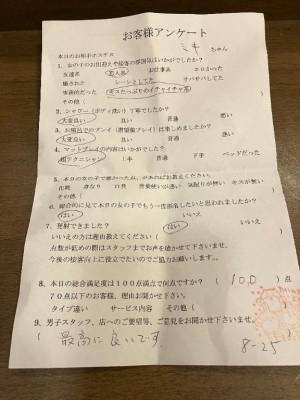 お客様アンケート
本日のお相手ホステス ミキ ちゃん
1、女の子のお出迎えや接客の雰囲気はいかがでしたか?
友達系 恋人系 お仕事系 エロかった
癒された しっとりしてた サバサバしてた
事務的だった キスたっぷりのイチャイチャ系
その他(
2、シャワー(ボディ洗い)丁寧でしたか?
大変良い 良い 普通 悪い
3、お風呂でのプレイ(潜望鏡プレイ)は楽しめましたか?
大変良い 良い 普通 悪い
4、マットプレイの内容はいかがでした?
超テクニシャン 上手 普通 下手 ベッドだった
5、本日の女の子で悪かった点が、あればお教えください。
化粧 身なり 口臭 言葉使いが悪い 気配りが無い キスが無い
その他(
6、総合的に見て本日の女の子でもう一度指名したいと思われましたか?
はい いいえ
7、発射できました? はい いいえ
いいえの方は理由教えてください(
点数が低めの際はスタッフまでお声を掛けて下さいませ。
今後の接客向上に役立てたいのでご協力お願いします。
8、本日の総合満足度は100点満点で何点ですか? (100)点
70点以下のお客様、理由お聞かせ下さい。
タイプ違い サービス内容 その他(
9、男子スタッフ、店へのご要望等、ご意見をお聞かせ下さいませ。
(最高に良いです
8-25